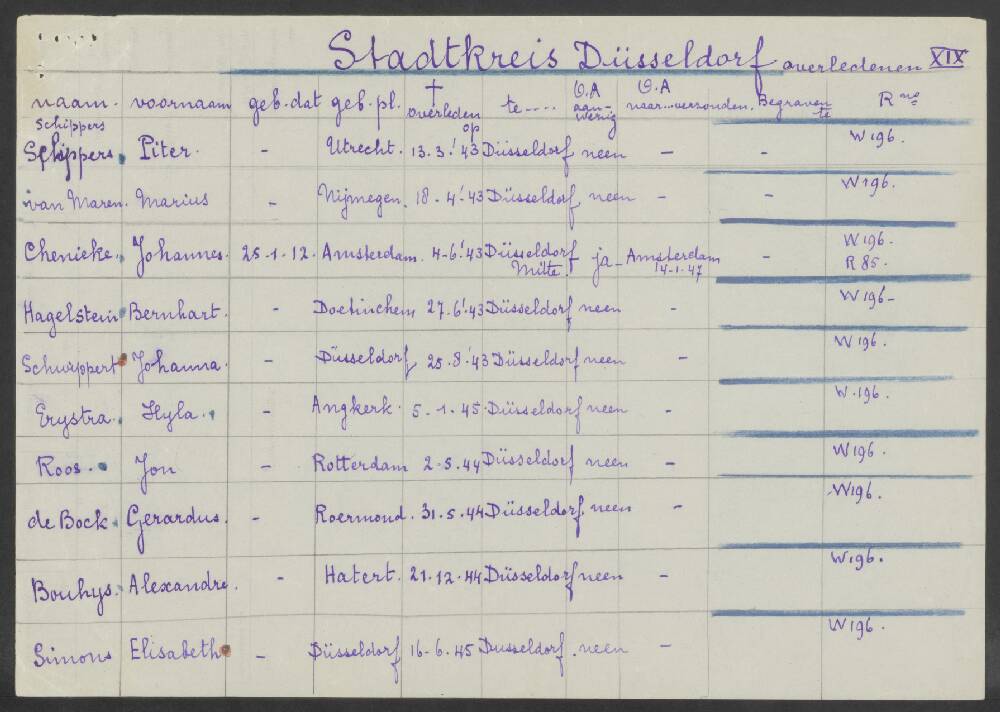 Stadtkreis Düsseldorf overledenen XIX
naam. voornaam geb.dat geb.pl. † overleden op te.... O.A aanwezig O.A naar...verzonden. Begraven te R no
Schippers
Schippers. Piter. - Utrecht. 13.3.'43 Düsseldorf neen - - W196.
van Maren. Marius - Nijmegen. 18.4.'43 Düsseldorf neen - - W196.
Chenieke. Johannes. 25.1.12. Amsterdam. 4-6.'43 Düsseldorf Mitte. ja - Amsterdam 14-1-47 - W196. R85.
Hagelstein Bernhart. - Doetinchem 27.6.'43 Düsseldorf neen - W196-
Schwippert Johanna. - Düsseldorf 25.8.'43 Düsseldorf neen - W196.
Erystra. Hyla. - Angkerk. 5.1.45. Düsseldorf neen - W.196.
Roos. Jon - Rotterdam 2-5.44 Düsseldorf neen - W196.
de Bock. Gerardus. - Roermond. 31.5.44 Düsseldorf. neen - W196.
Bouhys. Alexandre. - Hatert. 21.12.44 Düsseldorf neen - W196.
Simons Elisabeth - Düsseldorf 16-6.45 Dusseldorf. neen - W196.